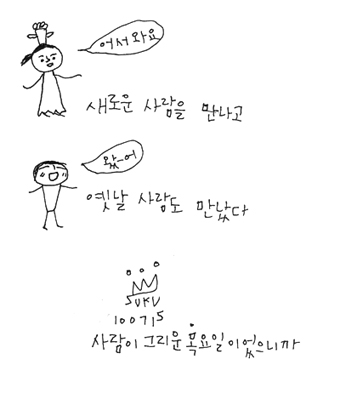 어서와요
새로운 사람을 만나고
왔어
옛날 사람도 만났다
SUKU
100715
사람이 그리운 목요일이었으니까